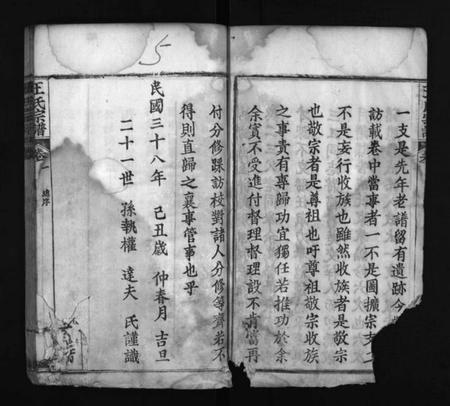 一支是先年老譜留有遺跡今
訪載卷中當事者一不是圖擴宗支二
不是妄行收族也雖然收族者是敬宗
也敬宗者是尊祖也吁尊祖敬宗收族
之事貴有專歸功宜獨任若推功於余
余實不受進付督理督理設不肯當再
付分修踩訪校對諸人分修等齊若不
得則直歸之襄事管事也乎
民國三十八年 己丑歲 仲春月 吉旦
二十一世 孫執權 達夫 氏謹識
王氏宗譜 卷一
5